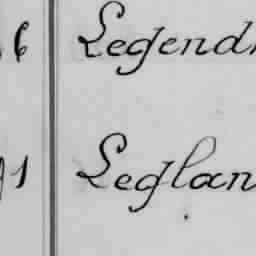 6 Legend
1 Leglan